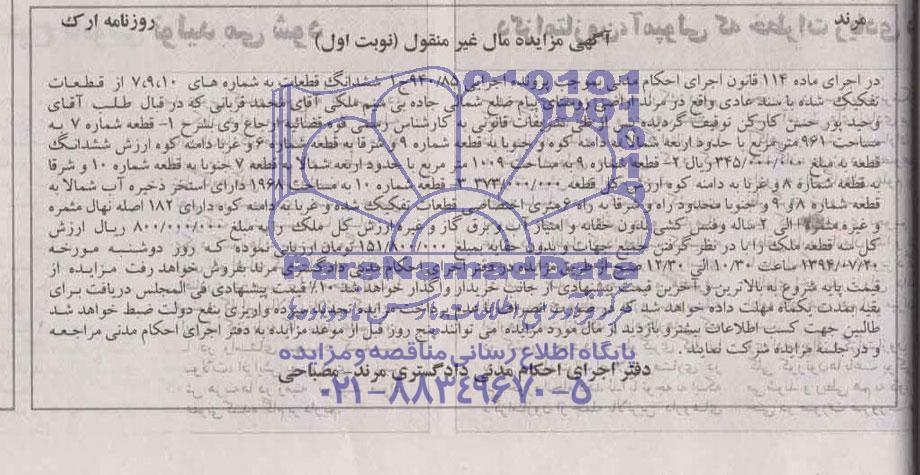 مرند
روزنامه ارک
آگهی مزایده مال غیر منقول (نوبت اول)
در اجرای ماده ۱۱۴ قانون اجرای احکام مدنی بموجب پرونده اجرایی ۹۴۰/۸۵ ششدانگ قطعات به شماره های ۷،۹،۱۰ از قطعات
تفکیک شده با سند عادی واقع در مرند اراضی روستای پیام ضلع شمالی جاده بی سیم ملکی آقای محمد قربانی که در قبال طلب آقای
وحید پور حسن کارکن توقیف گردیده تشریفات قانونی به کارشناس رسمی قوه قضائیه ارجاع وی بشرح ۱- قطعه شماره ۷ به
مساحت ۹۶۱ متر مربع با حدود اربعه شمالا به دامنه کوه و جنوبا به قطعه شماره ۹ و شرقا به قطعه شماره ۶ و غربا دامنه کوه ارزش ششدانگ
قطعه به مبلغ ۳۴۵/۰۰۰/۰۰۰ ریال ۲- قطعه شماره ۹ به مساحت ۱۰۰۹ متر مربع با حدود اربعه شمالا به قطعه ۷ جنوبا به قطعه شماره ۱۰ و شرقا
به قطعه شماره ۸ و غربا به دامنه کوه ارزش کل قطعه ۳۷۳/۰۰۰/۰۰۰ ۳- قطعه شماره ۱۰ به مساحت ۱۹۶۸ دارای استخر ذخیره آب شمالا به
قطعه شماره ۸ و ۹ و جنوبا محدود راه و شرقا به راه ۶ متری اختصاصی قطعات تفکیک شده و غربا به دامنه کوه دارای ۱۸۲ اصله نهال مثمره
و غیره مثمره الی ۲ ساله وفنس کشی بدون حقانه و امتیاز آب و برق گاز و غیره ارزش کل ملک را به مبلغ ۸۰۰/۰۰۰/۰۰۰ ریال ارزش
کل سه قطعه ملک را با در نظر گرفتن جمیع جهات و بدون حقابه بمبلغ ۱۵۱/۸۰۰/۰۰۰ تومان ارزیابی نموده که روز دوشنبه مورخه
۱۳۹۴/۰۷/۲۰ ساعت ۱۰/۳۰ الی ۱۲/۳۰ صبح از طریق مزایده در دفتر اجرای احکام مدنی دادگستری مرند بفروش خواهد رفت مزایده از
قیمت پایه شروع به بالاترین و آخرین قیمت پیشنهادی از جانب خریدار واگذار خواهد شد ۱۰٪ قیمت پیشنهادی فی المجلس دریافت برای
بقیه بمدت یکماه مهلت داده خواهد شد که در صورت انصراف یا عدم پرداخت مزایده سپرده واریزی بنفع دولت ضبط خواهد شد
طالبین جهت کسب اطلاعات بیشتر و بازدید از مال مورد مزایده می توانند پنج روز قبل از موعد مزایده به دفتر اجرای احکام مدنی مراجعه
و در جلسه مزایده شرکت نمایند .
دفتر اجرای احکام مدنی دادگستری مرند- مصباحی
ParsNamadData
پایگاه اطلاع رسانی مناقصه و مزایده
۰۲۱-۸۸۳۴۹۶۷۰-۵